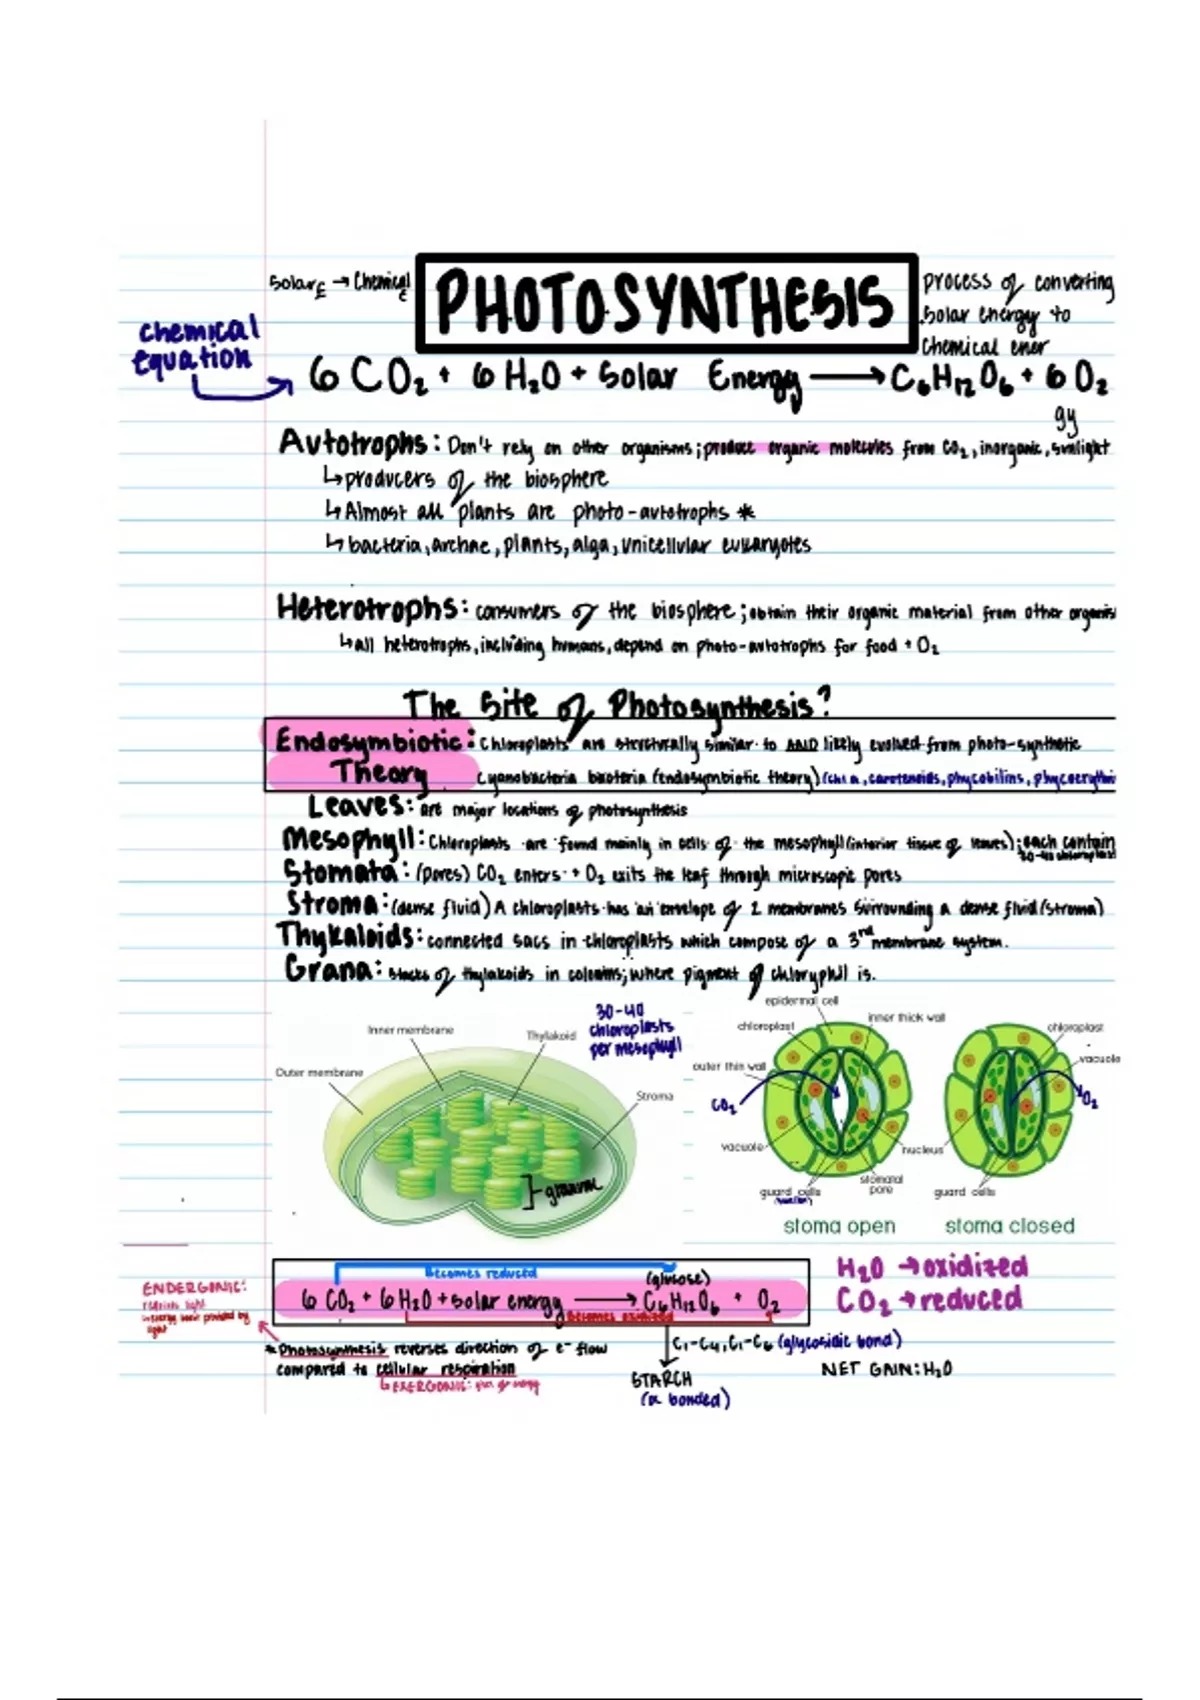 Solar E → Chemical E
PHOTOSYNTHESIS
process of converting
solar energy to
chemical ener
gy
chemical
equation
6 CO₂ + 6 H₂O + Solar Energy → C₆H₁₂O₆ + 6 O₂
Autotrophs: Don't rely on other organisms; produce organic molecules from CO₂, inorganic, sunlight
↳ producers of the biosphere
↳ Almost all plants are photo-autotrophs *
↳ bacteria, archae, plants, alga, unicellular eukaryotes
Heterotrophs: consumers of the biosphere; obtain their organic material from other organis
↳ all heterotrophs, including humans, depend on photo-autotrophs for food + O₂
The Site of Photosynthesis?
Endosymbiotic: Chloroplasts are structurally similar to AND likely evolved from photo-synthetic
Theory cyanobacteria bacteria (endosymbiotic theory) (chl a, carotenoids, phycobilins, phycoerythri
Leaves: are major locations of photosynthesis
Mesophyll: Chloroplasts are found mainly in cells of the mesophyll (interior tissue of leaves); each contain
30-40 chloroplast
Stomata: (pores) CO₂ enters + O₂ exits the leaf through microscopic pores
Stroma: (dense fluid) A chloroplasts has an envelope of 2 membranes surrounding a dense fluid (stroma)
Thykaloids: connected sacs in chloroplasts which compose of a 3rd membrane system.
Grana: stacks of thylakoids in coloums; where pigment of chloryphll is.
Inner membrane
Thylakoid
Outer membrane
Stroma
30-40
chloroplasts
per mesophyll
granum
epidermal cell
chloroplast
inner thick wall
outer thin wall
CO₂
vacuole
nucleus
stomatal
pore
guard cells
stoma open
chloroplast
vacuole
O₂
guard cells
stoma closed
Becomes reduced
(glucose)
6 CO₂ + 6 H₂O + solar energy → C₆H₁₂O₆ + O₂
Becomes oxidized
H₂O → oxidized
CO₂ → reduced
ENDERGONIC:
requires light
energy provided by
light
* Photosynthesis reverses direction of e⁻ flow
compared to cellular respiration
↳ EXERGONIC: energy
C₁-C₄, C₁-C₆ (glycosidic bond)
STARCH
(α bonded)
NET GAIN: H₂O